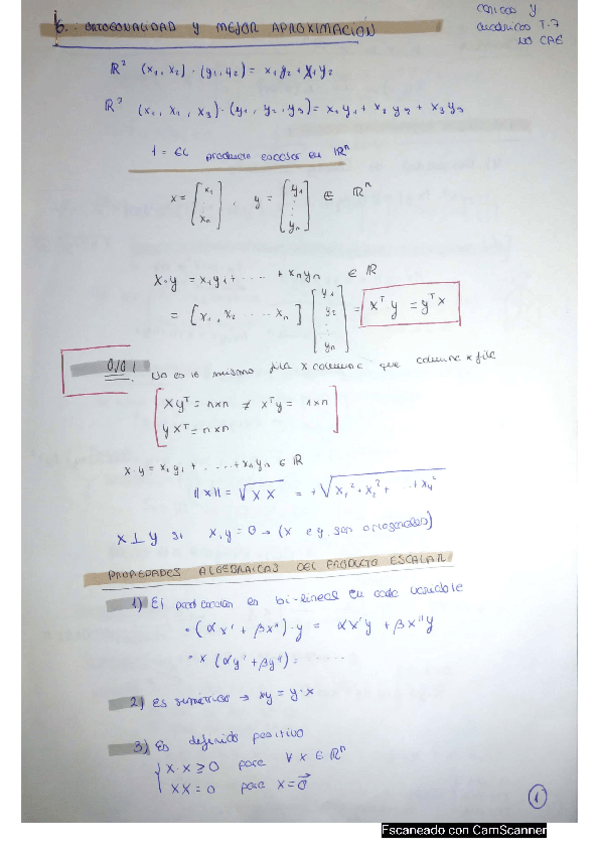 6. ORTOGONALIDAD Y MEJOR APROXIMACIÓN
CÓNICAS Y
CUÁDRICAS T.7
NO CAE
ℝ² (x₁, x₂) · (y₁, y₂) = x₁y₂ + x₁y₂
ℝ³ (x₁, x₂, x₃) · (y₁, y₂, y₃) = x₁y₁ + x₂y₂ + x₃y₃
1 = El producto escalar en ℝⁿ
x = [x₁ xₙ], y = [y₁ ⋮ yₙ] ∈ ℝⁿ
x·y = x₁y₁ + ..... + xₙyₙ ∈ ℝ
= [x₁, x₂ ..... xₙ] [y₁ y₂ ⋮ yₙ] = xᵀy = yᵀx
OJO! No es lo mismo fila x columna que columna x fila
xyᵀ = n×n ≠ xᵀy = 1×n
yxᵀ = n×n
x·y = x₁y₁ + .....+ xₙyₙ ∈ ℝ
||x|| = √xx = +√x₁² + x₂² + ... + x₄²
x ⊥ y si x,y = 0 → (x e y son ortogonales)
PROPIEDADES ALGEBRAICAS DEL PRODUCTO ESCALAR
1) El es bi-lineal en cada variable
· (αx' + βx'')·y = αx'y + βx''y
· x (αy' + βy'') = .....
2) Es simétrico → xy = y·x
3) Es definido positivo
x·x ≥ 0 para ∀ x ∈ ℝⁿ
xx = 0 para x = 0⃗
1
Escaneado con CamScanner